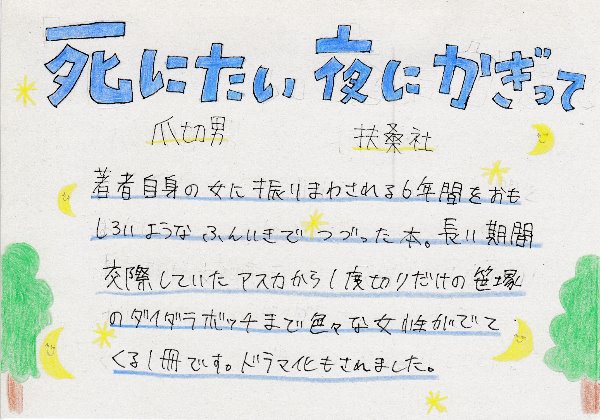 死にたい夜にかぎって
爪切男 扶桑社
著者自身の女に振りまわされる6年間をおも
しろいようなふんいきでつづった本。長い期間
交際していたアスカから1度切りだけの笹塚
のダイダラボッチまで色々な女性がでて
くる1冊です。ドラマ化もされました。